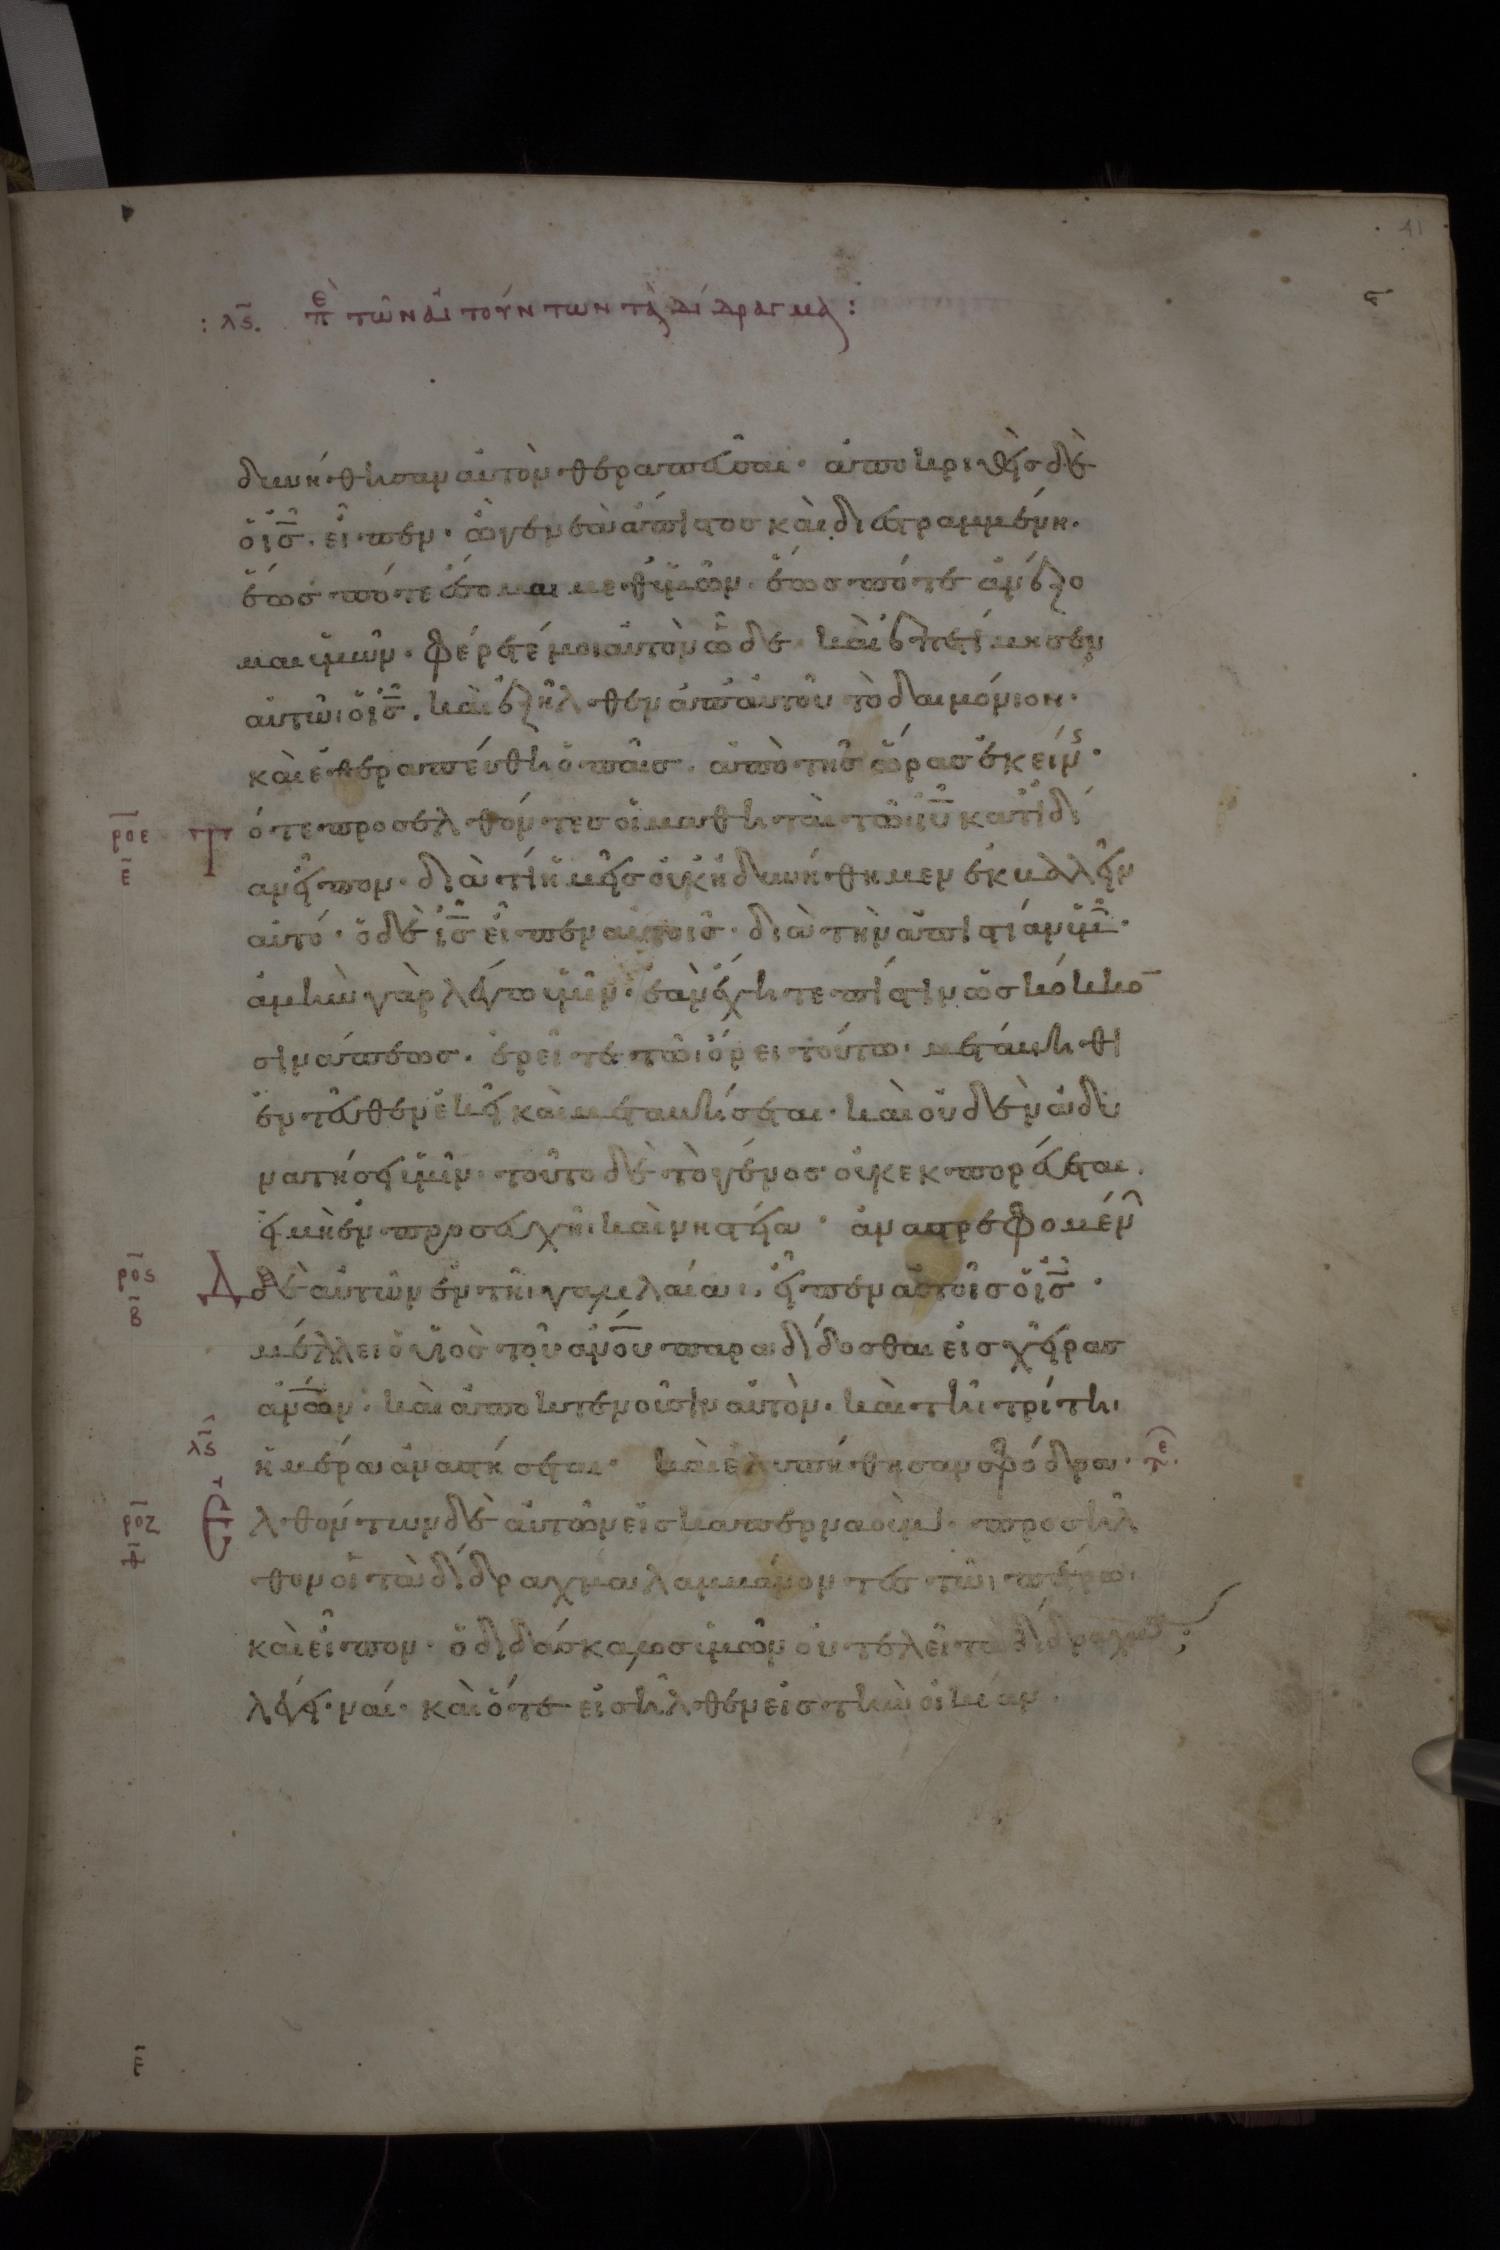 41
ε̄
: λς̄. πε τῶν αἰτούντων τὰ δίδραγμα :
δυνήθησαν αὐτὸν θεραπεῦσαι· ἀποκριθεὶς δὲ
ὁ ι̅ς̅. εἶπεν· ὦ γενεὰ ἄπιστος καὶ διεστραμμένη·
ἕως πότε ἔσομαι μεθ' ὑμῶν· ἕως πότε ἀνέξο
μαι ὑμῶν· φέρετέ μοι αὐτὸν ὧδε· καὶ ἐπετίμησεν
αὐτῶι ὁ ι̅ς̅. καὶ ἐξῆλθεν ἀπ' αὐτοῦ τὸ δαιμόνιον·
καὶ ἐθεραπεύθη ὁ παῖς. ἀπὸ τῆς ὥρας ἐκείνς·
ρ̅ο̅ε̅ τότε προσελθόντες οἱ μαθηταὶ τῶ ι̅υ̅ κατ' ἰδί
ε̄
αν εἶπον· διὰ τί ἡμεῖς οὐκ ἠδυνήθημεν ἐκβαλεῖν
αὐτό· ὁ δὲ ι̅ς̅ εἶπεν αὐτοῖς· διὰ τὴν ἀπιστίαν ὑμ̅·
ἀμὴν γὰρ λέγω ὑμῖν· ἐὰν ἔχητε πίστιν ὡς κόκκο̅
σινάπεως. ἐρεῖτε τῶι ὄρει τούτω· μετάβηθι
ἐντεῦθεν ἐκεῖ καὶ μεταβήσεται· καὶ οὐδὲν ἀδυ
νατήσει ὑμῖν· τοῦτο δὲ τὸ γένος οὐκ ἐκπορεύεται.
εἰ μὴ ἐν προσευχῆι καὶ νηστεία· ἀναστρεφομέν
ρ̅ο̅ς̅ Δ δὲ αὐτῶν ἐν τῆι γαλιλαία·. εἶπεν αὐτοῖς ὁ ι̅ς̅·
β̄
μέλλει ὁ υἱὸς τοῦ ἀν̅ο̅υ̅ παραδίδοσθαι εἰς χεῖρας
ἀν̅ω̅ν· καὶ ἀποκτενοῦσιν αὐτὸν· καὶ τῆι τρίτηι
λς̄
ἡμέρα ἀναστήσεται· καὶ ἐλυπήθησαν σφόδρα· τε.
ρ̅ο̅ζ̅ Ελθόντων δὲ αὐτῶν εἰς καπερναούμ· προσῆλ
ῑ
θον οἱ τὰ δίδραχμα λαμβάνοντες τῶι πέτρω·
καὶ εἶπον· ὁ διδάσκαλος ὑμῶν οὐ τελεῖ τὰ δίδραχμα;
λέγει· ναί· καὶ ὅτε εἰσῆλθεν εἰς τὴν οἰκίαν·
ε̄